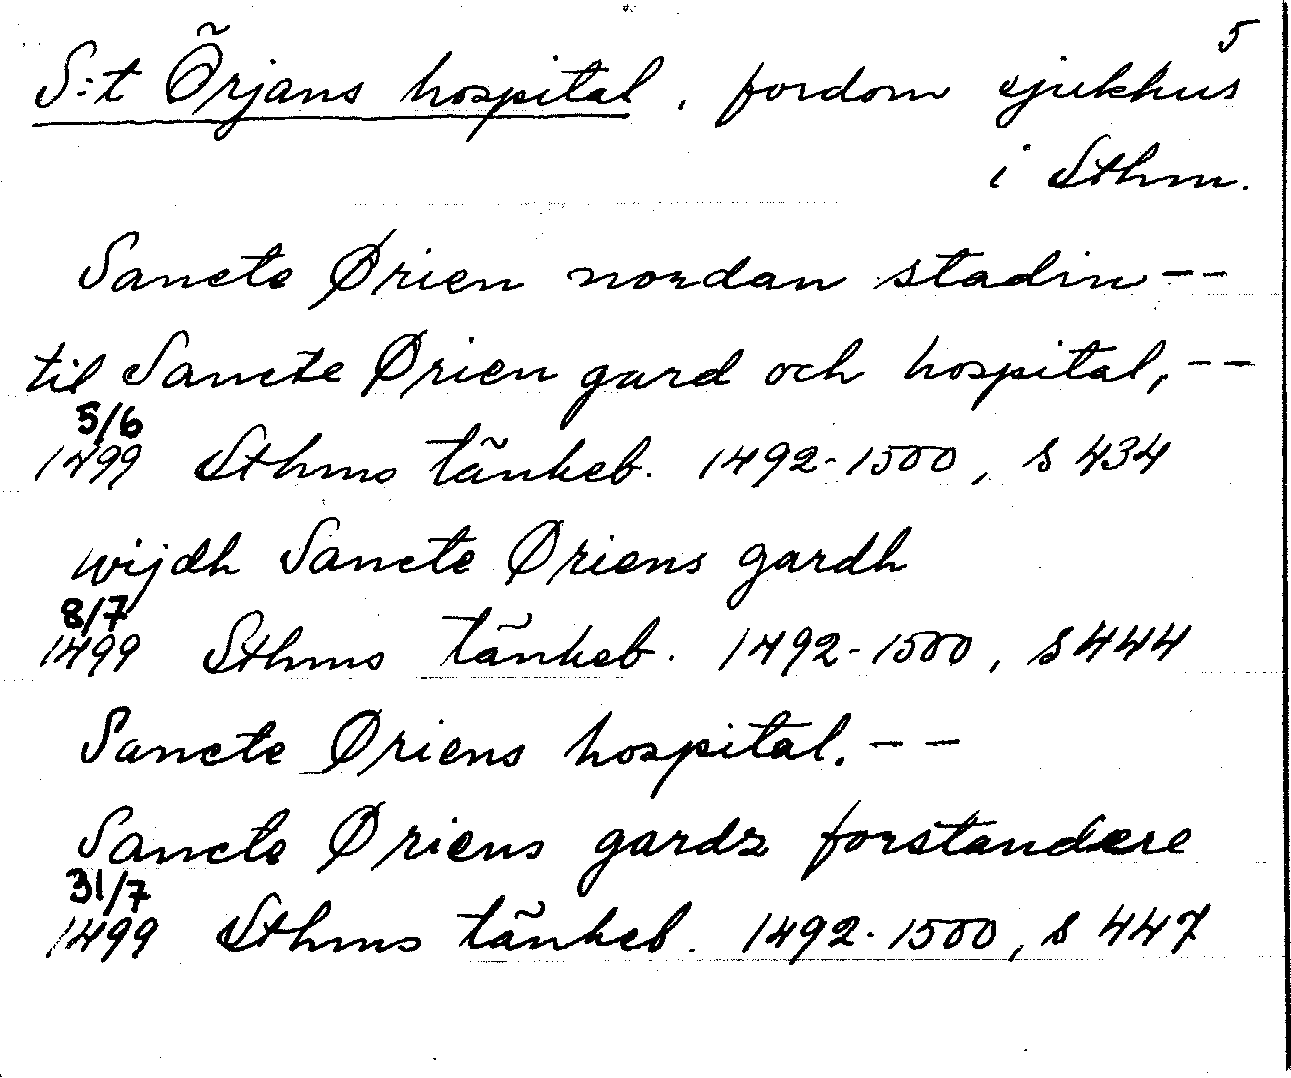 5
S:t Örjans hospital, fordom sjukhus
i Sthm.
Sancte Ørien nordan stadin --
til Sancte Ørien gard och hospital, --
5/6
1499 Sthms tänkeb. 1492-1500, s 434
wijdh Sancte Øriens gardh
8/7
1499 Sthms tänkeb. 1492-1500, s 444
Sancte Øriens hospital. --
Sancte Øriens gardz forstandere
31/7
1499 Sthms tänkeb. 1492-1500, s 447